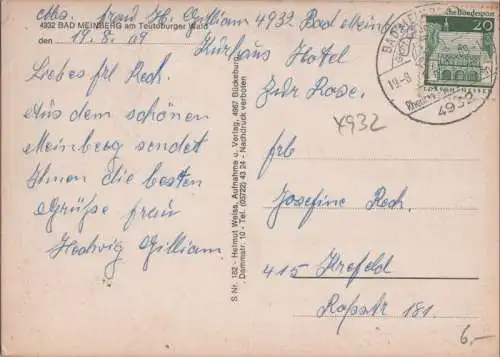 Abs. frau H. Gilliam 4932 Bad Meinberg
4932 BAD MEINBERG am Teutoburger Wald
Kurhaus Hotel
den 19.8.69
zur Rose.
Liebes frl Rech.
Aus dem schönen
Meinberg sendet
Ihnen die besten
Grüße frau
Hedwig Gilliam
S Nr. 182 - Helmut Weiss, Aufnahme u. Verlag, 4967 Bückeburg,
Dammstr. 10 - Tel. (05722) 43 24 - Nachdruck verboten
Deutsche Bundespost
20
LORSCH/HESSEN
19.-8.
4932
4932
frl
Josefine Rech.
415 Krefeld
Roßstr 181.
6,-